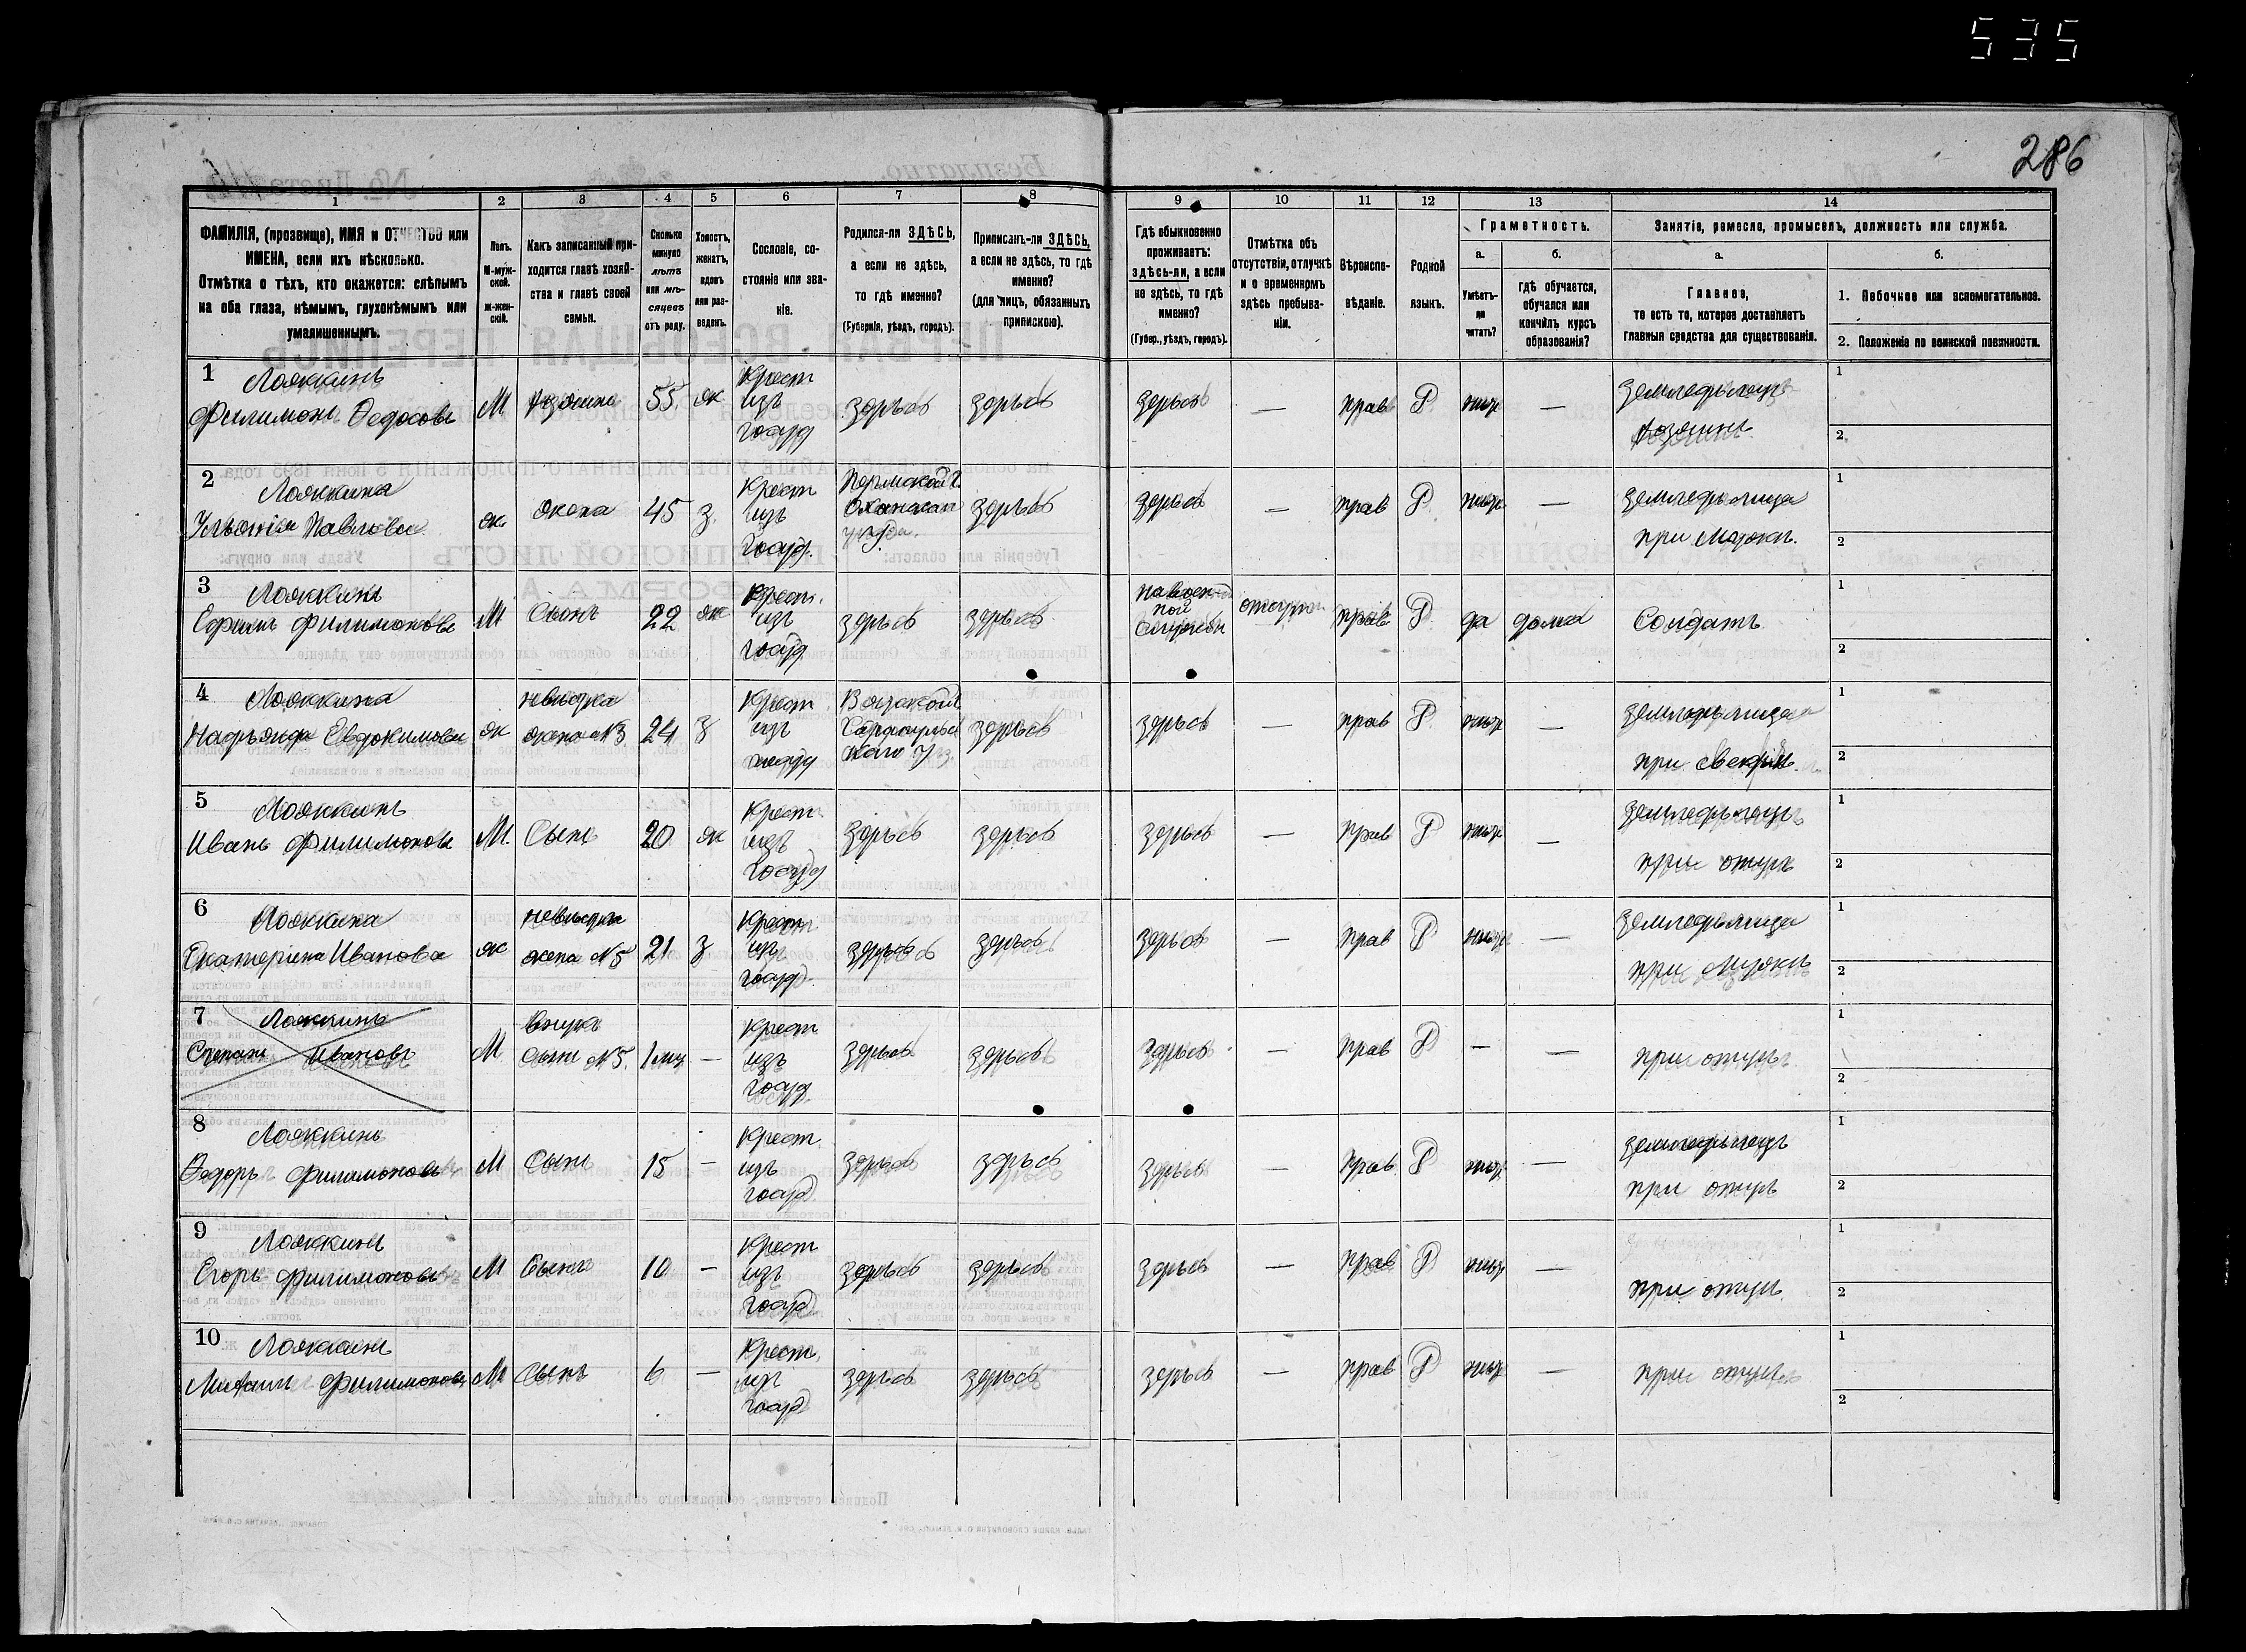 535
286
1
2
3
4
5
6
7
8
9
10
11
12
13
14
ФАМИЛІЯ, (прозвище), ИМЯ и ОТЧЕСТВО или
ИМЕНА, если ихъ нѣсколько.
Отмѣтка о тѣхъ, кто окажется: слѣпымъ
на оба глаза, нѣмымъ, глухонѣмымъ или
умалишеннымъ.
Полъ.
М-муж-
ской.
ж-жен-
скій.
Какъ записанный при-
ходится главѣ хозяй-
ства и главѣ своей
семьи.
Сколько
минуло
лѣтъ
или мѣ-
сяцевъ
отъ роду.
Холостъ,
женатъ,
вдовъ
или раз-
веденъ.
Сословіе, со-
стояніе или зва-
ніе.
Родился-ли ЗДѢСЬ,
а если не здѣсь,
то гдѣ именно?
(Губернія, уѣздъ, городъ).
Приписанъ-ли ЗДѢСЬ,
а если не здѣсь, то гдѣ
именно?
(для лицъ, обязанныхъ
припискою).
Гдѣ обыкновенно
проживаетъ:
здѣсь-ли, а если
не здѣсь, то гдѣ
именно?
(Губер., уѣздъ, городъ).
Отмѣтка объ
отсутствіи, отлучкѣ
и о временномъ
здѣсь пребыва-
ніи.
Вѣроиспо-
вѣданіе.
Родной
языкъ.
Граметность.
а.
Умѣетъ-
ли
читать?
б.
гдѣ обучается,
обучался или
кончилъ курсъ
образованія?
Занятіе, ремесло, промыселъ, должность или служба.
а.
Главное,
то есть то, которое доставляетъ
главныя средства для существованія.
б.
1. Побочное или вспомогательное.
2. Положеніе по воинской повинности.
1
Филимонъ Ѳедосовъ
М
хозяинъ
55
ж
Крест
изъ
госуд
здѣсь
здѣсь
здѣсь
—
прав
Р
нѣтъ
—
земледѣлецъ
хозяинъ
1
2
2
Павлова
ж
жена
45
з
Крест
изъ
госуд.
Пермской г
Оханскаго
здѣсь
здѣсь
—
прав
Р
нѣтъ
—
земледѣлица
при мужѣ.
1
2
3
Ефимъ Филимоновъ
М
Сынъ
22
ж
Крест.
изъ
госуд
здѣсь
здѣсь
на воен
ной
службѣ
прав
Р
да
дома
Солдатъ
1
2
4
Надѣжда Евдокимова
ж
невѣстка
жена №3
24
з
Крест
изъ
госуд
Вятской
Сарапульс
каго у
здѣсь
здѣсь
—
прав
Р
нѣтъ
—
земледѣлица
при свекрѣ
1
2
5
Иванъ Филимоновъ
М.
Сынъ
20
ж
Крест
изъ
Госуд
здѣсь
здѣсь
здѣсь
—
прав
Р
нѣтъ
—
земледѣлецъ
при отцѣ
1
2
6
Екатерина Иванова
ж
невѣстка
жена №5
21
з
Крест
изъ
госуд.
здѣсь
здѣсь
здѣсь
—
прав
Р
нѣтъ
—
земледѣлица
при мужѣ
1
2
7
Степанъ Ивановъ
М
Внукъ
сынъ №5.
1 мц
—
Крест
изъ
госуд.
здѣсь
здѣсь
здѣсь
—
прав
Р
—
—
при отцѣ
1
2
8
Ѳедоръ Филимоновъ
М
Сынъ
15
—
Крест
изъ
госуд
здѣсь
здѣсь
здѣсь
—
прав
Р
нѣтъ
—
земледѣлецъ
при отцѣ
1
2
9
Егоръ Филимоновъ
М
Сынъ
10
—
Крест
изъ
госуд
здѣсь
здѣсь
здѣсь
—
прав
Р
нѣтъ
—
при отцѣ
1
2
10
Михаилъ Филимоновъ
М
Сынъ
6
—
Крест
изъ
госуд
здѣсь
здѣсь
здѣсь
—
прав
Р
нѣтъ
—
при отцѣ
1
2